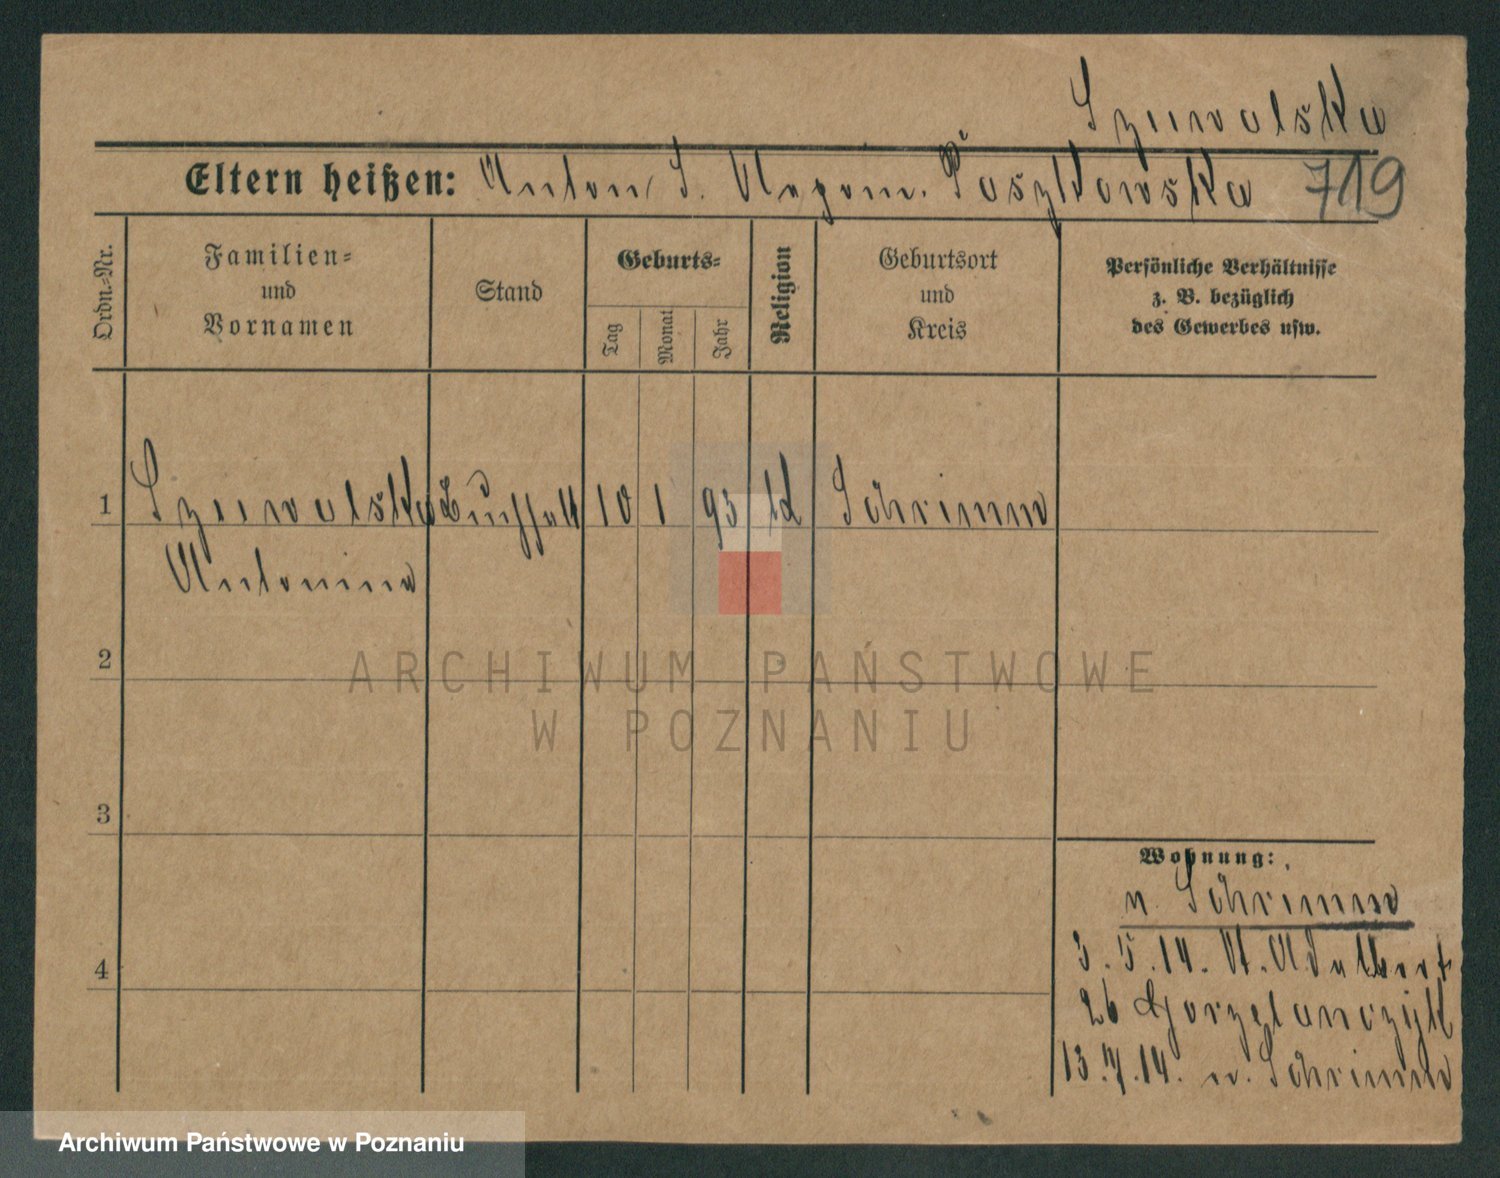 Szuwalska
Eltern heißen: Anton, S. Nepom. Paszkowska 719
Ordn.-Nr.
Familien-
und
Vornamen
Stand
Geburts-
Tag
Monat
Jahr
Religion
Geburtsort
und
Kreis
Persönliche Verhältnisse
z. B. bezüglich
des Gewerbes usw.
1 Szuwalska 10 1 93 k Schrimm
Antonina
2
3
4
Wohnung:
n. Schrimm
3.5.14. St. Adalbert
26 Gorzelanczyk
13.7.14. n. Schrimm
ARCHIWUM PAŃSTWOWE
W POZNANIU
Archiwum Państwowe w Poznaniu